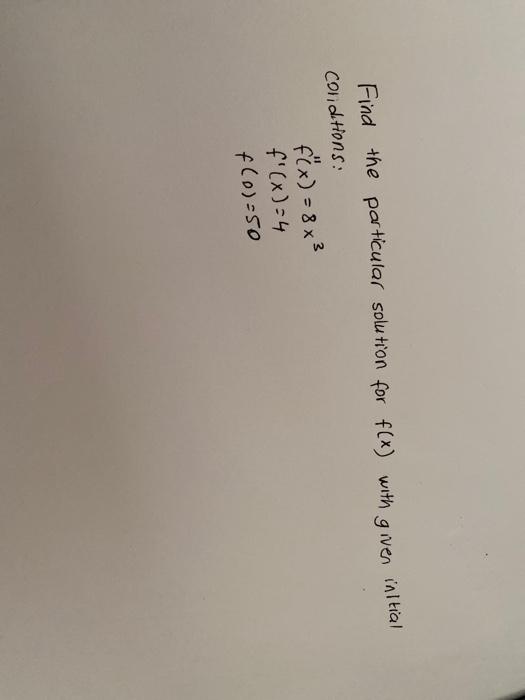 Find the particular solution for f(x) with given initial
conditions:
f"(x) = 8x³
f'(x) = 4
f(0) = 50